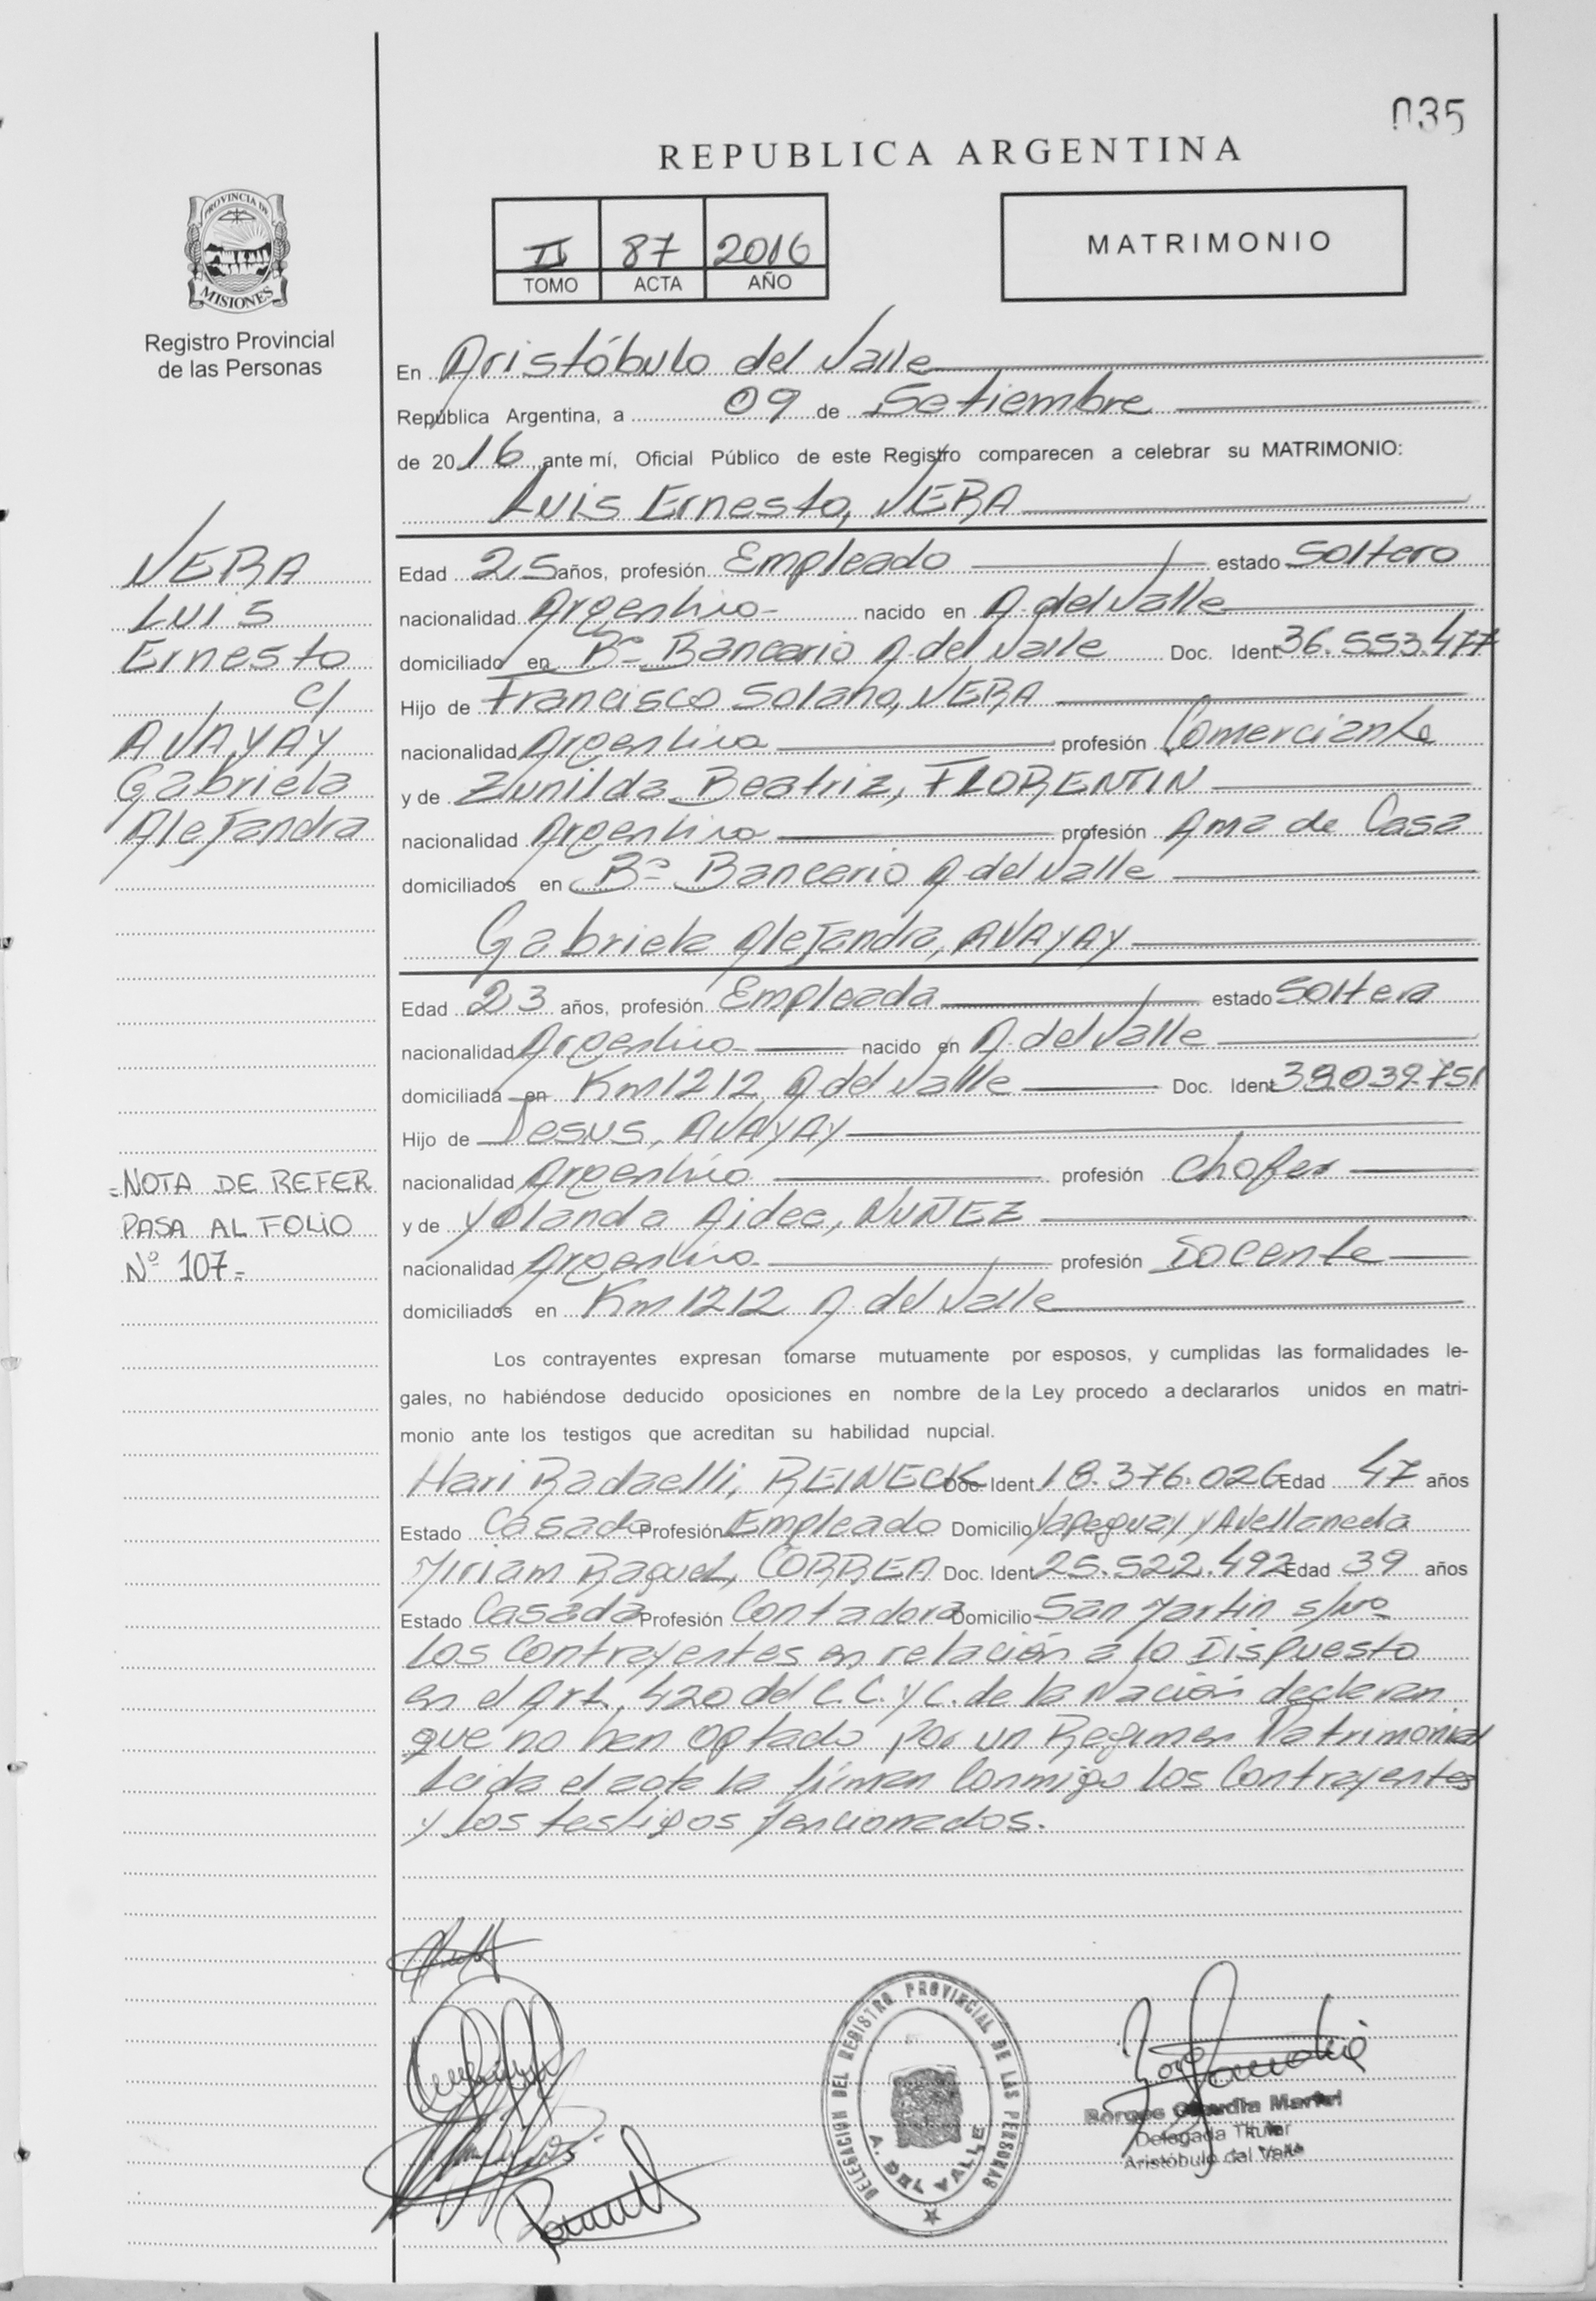 035
REPUBLICA ARGENTINA
PROVINCIA DE
MISIONES
Registro Provincial
de las Personas
II 87 2016
TOMO ACTA AÑO
MATRIMONIO
En Aristóbulo del Valle
República Argentina, a 09 de Setiembre
de 2016, ante mí, Oficial Público de este Registro comparecen a celebrar su MATRIMONIO:
Luis Ernesto, VERA
VERA
LUIS
Ernesto
c/
AVAYAY
Gabriela
Alejandra
Edad 25 años, profesión Empleado estado Soltero
nacionalidad Argentino nacido en A. del Valle
domiciliado en Bº Bancario A del Valle Doc. Ident 36.553.477
Hijo de Francisco Solano, VERA
nacionalidad Argentina profesión Comerciante
y de Zunilda Beatriz, FLORENTIN
nacionalidad Argentina profesión Ama de Casa
domiciliados en Bº Bancario A del Valle
Gabriela Alejandra, AVAYAY
Edad 23 años, profesión Empleada estado Soltera
nacionalidad Argentino nacido en A. del Valle
domiciliada en Km 1212 A del Valle Doc. Ident 39.039.751
Hijo de Jesus, AVAYAY
nacionalidad Argentino profesión Chofer
y de Yolanda Aidee, NUÑEZ
nacionalidad Argentino profesión Docente
domiciliados en Km 1212 A. del Valle
=NOTA DE REFER
PASA AL FOLIO
Nº 107=
Los contrayentes expresan tomarse mutuamente por esposos, y cumplidas las formalidades le-
gales, no habiéndose deducido oposiciones en nombre de la Ley procedo a declararlos unidos en matri-
monio ante los testigos que acreditan su habilidad nupcial.
Hari Radaelli, REINECK Doc. Ident 18.376.026 Edad 47 años
Estado Casado Profesión Empleado Domicilio Yapeguay y Avellaneda
Miriam Raquel, CORREA Doc. Ident 25.522.492 Edad 39 años
Estado Casada Profesión Contadora Domicilio San Martin s/Nº
Los Contrayentes en relación a lo Dispuesto
en el Art. 420 del C.C. y C. de la Nación declaran
que no han optado por un Regimen Patrimonial
Leida el acta la firman Conmigo los Contrayentes
y los testigos Mencionados.
DELEGACION DEL REGISTRO PROVINCIAL DE LAS PERSONAS
A. DEL VALLE
Borges Claudia Mariel
Delegada Titular
Aristóbulo del Valle